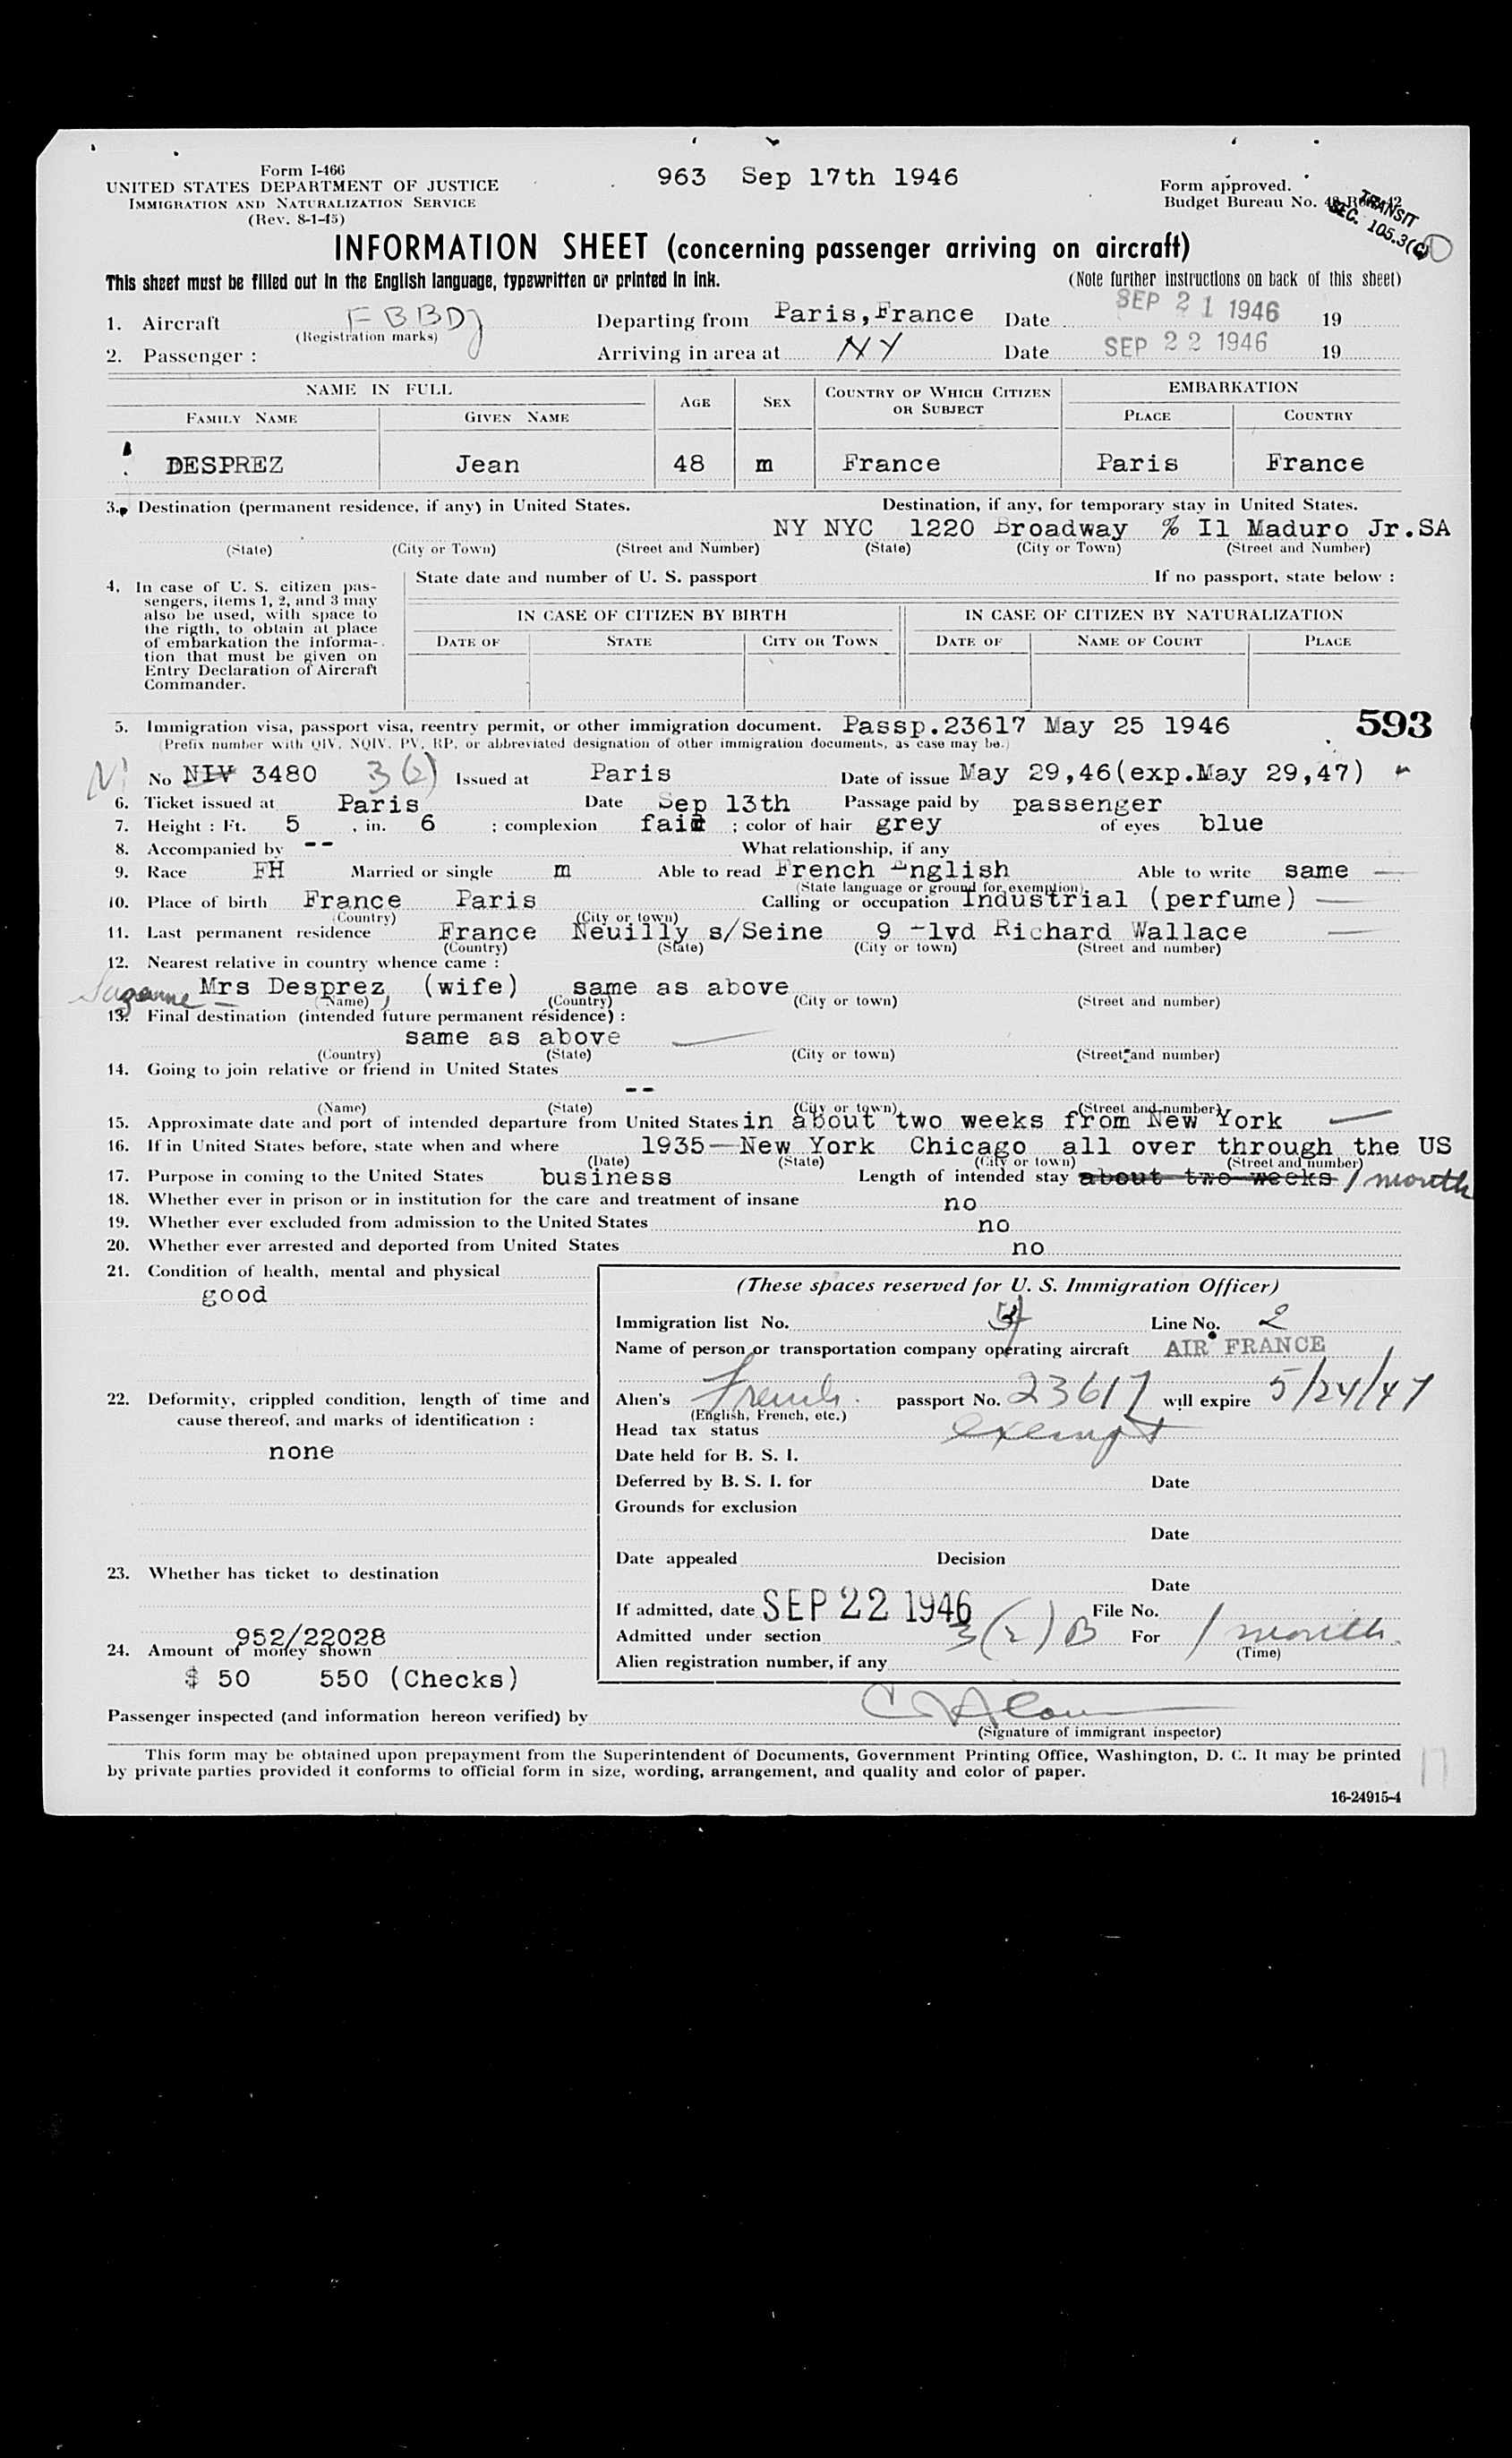 Form I-466
UNITED STATES DEPARTMENT OF JUSTICE
IMMIGRATION AND NATURALIZATION SERVICE
(Rev. 8-1-45)
963 Sep 17th 1946
Form approved.
Budget Bureau No.
TRANSIT
SEC. 105.3(C)
INFORMATION SHEET (concerning passenger arriving on aircraft)
This sheet must be filled out in the English language, typewritten or printed in ink.
(Note further instructions on back of this sheet)
1. Aircraft FBBDJ Departing from Paris,France Date SEP 21 1946 19
(Registration marks)
2. Passenger : Arriving in area at NY Date SEP 22 1946 19
NAME IN FULL AGE SEX COUNTRY OF WHICH CITIZEN OR SUBJECT EMBARKATION
FAMILY NAME GIVEN NAME PLACE COUNTRY
DESPREZ Jean 48 m France Paris France
3. Destination (permanent residence, if any) in United States. Destination, if any, for temporary stay in United States.
NY NYC 1220 Broadway % Il Maduro Jr.SA
(State) (City or Town) (Street and Number) (State) (City or Town) (Street and Number)
4. In case of U. S. citizen pas-
sengers, items 1, 2, and 3 may
also be used, with space to
the rigth, to obtain at place
of embarkation the informa-
tion that must be given on
Entry Declaration of Aircraft
Commander.
State date and number of U. S. passport If no passport, state below :
IN CASE OF CITIZEN BY BIRTH IN CASE OF CITIZEN BY NATURALIZATION
DATE OF STATE CITY OR TOWN DATE OF NAME OF COURT PLACE
5. Immigration visa, passport visa, reentry permit, or other immigration document. Passp.23617 May 25 1946 593
(Prefix number with QIV, NQIV, PV, RP, or abbreviated designation of other immigration documents, as case may be.)
No NIV 3480 3(2) Issued at Paris Date of issue May 29,46(exp.May 29,47)
6. Ticket issued at Paris Date Sep 13th Passage paid by passenger
7. Height : Ft. 5 , in. 6 ; complexion fair ; color of hair grey of eyes blue
8. Accompanied by -- What relationship, if any
9. Race FH Married or single m Able to read French English Able to write same
(State language or ground for exemption)
10. Place of birth France Paris Calling or occupation Industrial (perfume)
(Country) (City or town)
11. Last permanent residence France Neuilly s/Seine 9 -lvd Richard Wallace
(Country) (State) (City or town) (Street and number)
12. Nearest relative in country whence came :
Suzanne Mrs Desprez (wife) same as above
(Name) (Country) (City or town) (Street and number)
13. Final destination (intended future permanent résidence) :
same as above
(Country) (State) (City or town) (Street and number)
14. Going to join relative or friend in United States
--
(Name) (State) (City or town) (Street and number)
15. Approximate date and port of intended departure from United States in about two weeks from New York
16. If in United States before, state when and where 1935—New York Chicago all over through the US
(Date) (State) (City or town) (Street and number)
17. Purpose in coming to the United States business Length of intended stay about two weeks 1 month
18. Whether ever in prison or in institution for the care and treatment of insane no
19. Whether ever excluded from admission to the United States no
20. Whether ever arrested and deported from United States no
21. Condition of health, mental and physical
good
22. Deformity, crippled condition, length of time and
cause thereof, and marks of identification :
none
23. Whether has ticket to destination
952/22028
24. Amount of money shown
$ 50 550 (Checks)
(These spaces reserved for U. S. Immigration Officer)
Immigration list No. Line No. 2
Name of person or transportation company operating aircraft AIR FRANCE
Alien's French passport No. 23617 will expire 5/24/47
(English, French, etc.)
Head tax status exempt
Date held for B. S. I.
Deferred by B. S. I. for Date
Grounds for exclusion
Date
Date appealed Decision
Date
If admitted, date SEP 22 1946 File No.
Admitted under section 3(2)B For 1 month
(Time)
Alien registration number, if any
Passenger inspected (and information hereon verified) by
(Signature of immigrant inspector)
This form may be obtained upon prepayment from the Superintendent of Documents, Government Printing Office, Washington, D. C. It may be printed
by private parties provided it conforms to official form in size, wording, arrangement, and quality and color of paper.
16-24915-4